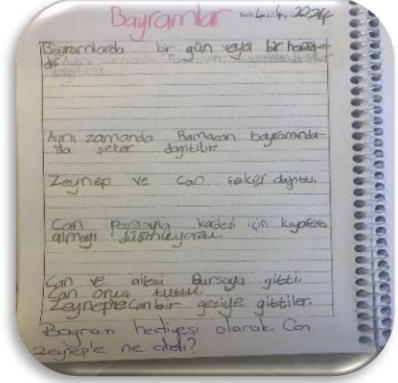 Bayramlar
4, 2024
Bayramlarda bir gün veya bir
dır Aynı zamanda Ramazan
dağıtılır
Aynı zamanda Ramazan bayramında-
da şeker dağıtılır
Zeynep ve Can şeker dağıttı.
Can parasıyla kardeşi için kıyafet
almayı düşünüyordu.
Can ve ailesi Bursaya gitti.
Can oruç tuttu.
Zeyneple Can bir geziye gittiler.
Bayram hediyesi olarak Can
Zeynep'e ne aldı?